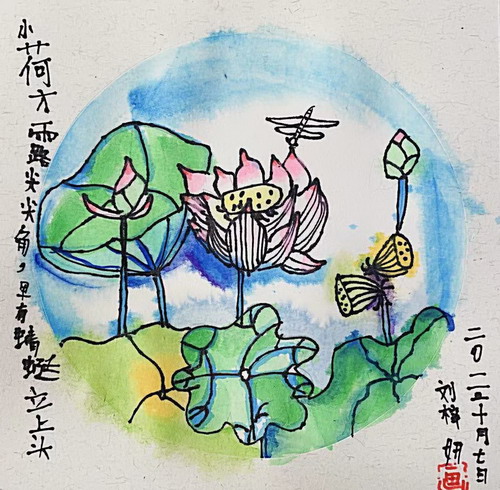 小荷才露尖尖角，早有蜻蜓立上头
十月七日
刘梓妍
画